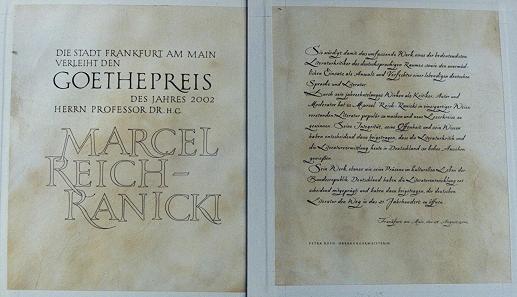 DIE STADT FRANKFURT AM MAIN
VERLEIHT DEN
GOETHEPREIS
DES JAHRES 2002
HERRN PROFESSOR DR. H.C.
MARCEL
REICH-
RANICKI
Sie würdigt damit das umfassende Werk eines der bedeutendsten
Literaturkritiker des deutschsprachigen Raumes sowie den unermüd-
lichen Einsatz als Anwalt und Verfechter einer lebendigen deutschen
Sprache und Literatur.
Durch sein jahrzehntelanges Wirken als Kritiker, Autor und
Moderator hat es Marcel Reich-Ranicki in einzigartiger Weise
verstanden Literatur populär zu machen und neue Leserkreise zu
gewinnen. Seine Integrität, seine Offenheit und sein Wissen
haben entscheidend dazu beigetragen, dass die Literaturkritik und
die Literaturvermittlung heute in Deutschland so hohes Ansehen
genießen.
Sein Werk, ebenso wie seine Präsenz im kulturellen Leben der
Bundesrepublik Deutschland haben die Literaturentwicklung ent-
scheidend mitgeprägt und haben dazu beigetragen, der deutschen
Literatur den Weg in das 21. Jahrhundert zu öffnen.
Frankfurt am Main, den 28. August 2002
PETRA ROTH OBERBÜRGERMEISTERIN